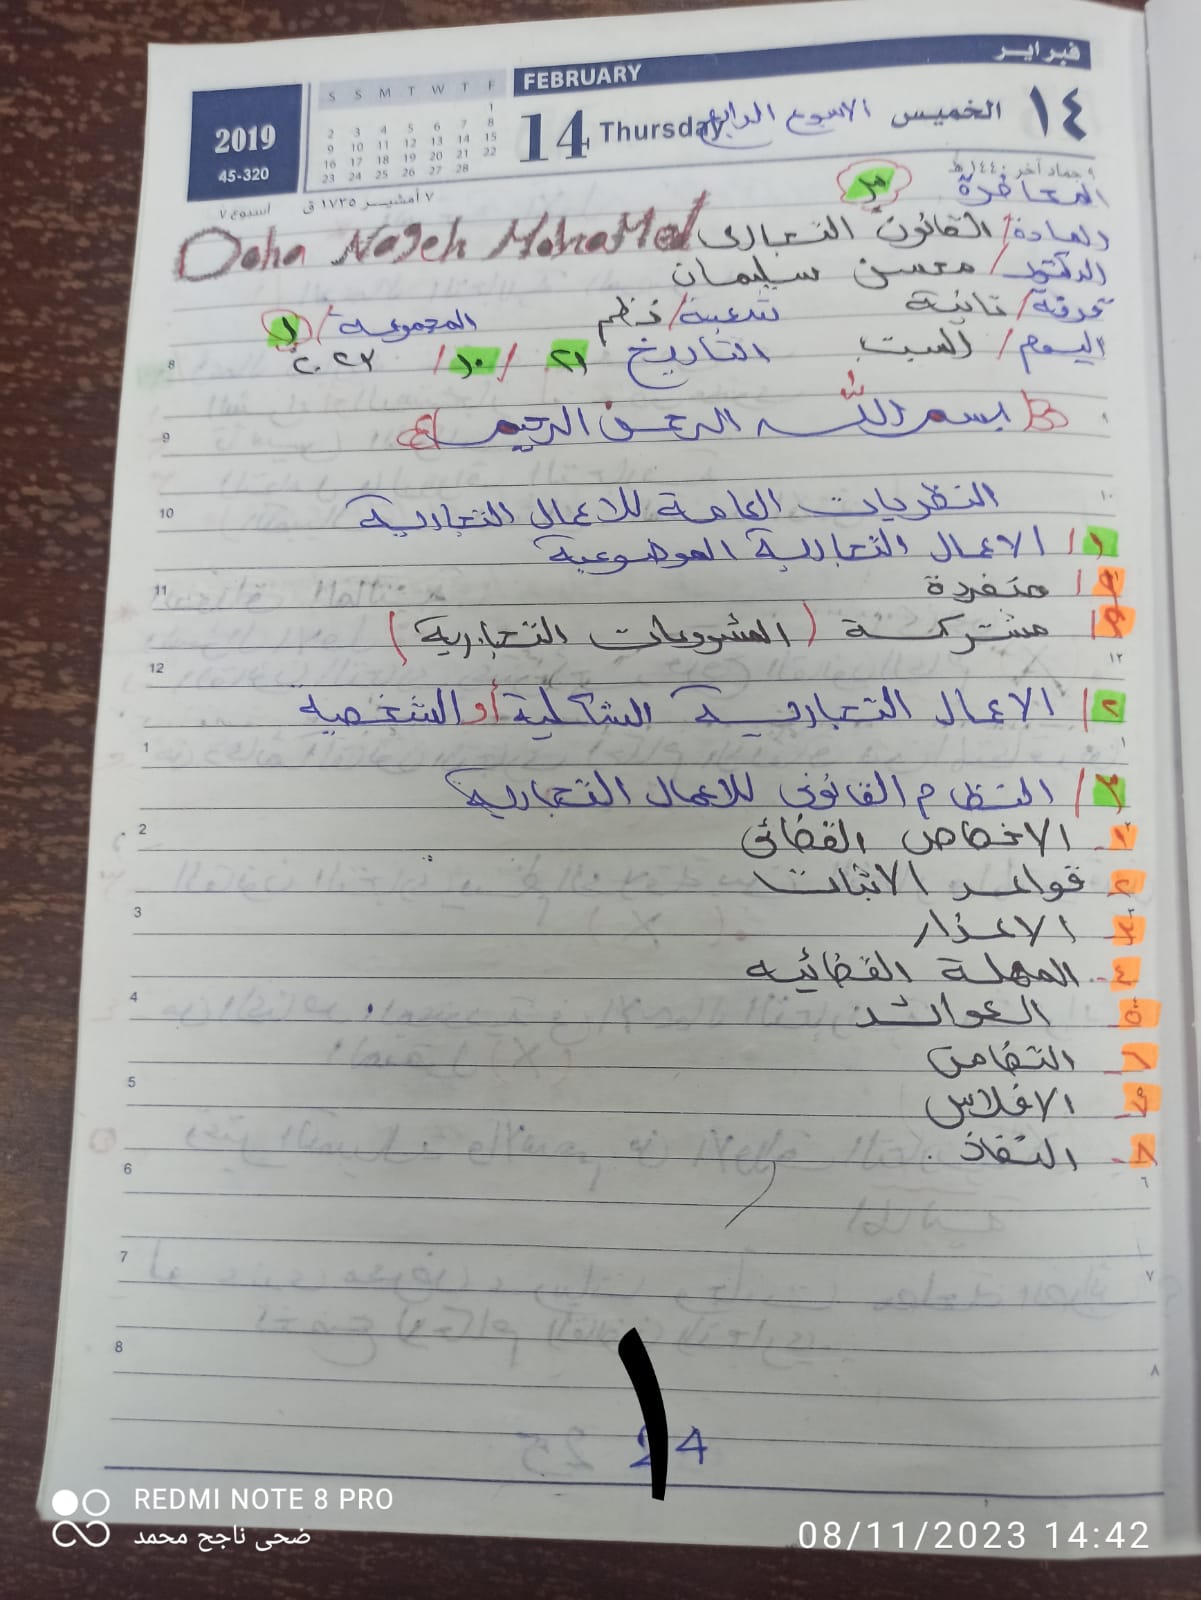 فبراير
FEBRUARY
S S M T W T F
1
2 3 4 5 6 7 8
9 10 11 12 13 14 15
16 17 18 19 20 21 22
23 24 25 26 27 28
2019
45-320
14 Thursday
الاسبوع الرابع
الخميس ١٤
٩ جماد آخر ١٤٤٠ هـ
٧ أمشير ١٧٣٥ ق
أسبوع ٧
المحاضرة
المادة/ القانون التجارى
Doha Nageh Mohamed
الدكتور/ محسن سليمان
فرقة/ تانية شعبة/ نظم المجموعة/
اليوم/ السبت التاريخ ٢١/١٠/٢٠٢٣
بسم الله الرحمن الرحيم
النظريات العامة للاعمال التجارية
١/ الاعمال التجارية الموضوعية
منفردة
مشتركة (المشروعات التجارية)
٢/ الاعمال التجارية الشكلية أو الشخصية
٣/ النظام القانونى للاعمال التجارية
١- الاختصاص القضائى
٢- قواعد الاثبات
٣- الاعذار
٤- المهلة القضائيه
٥- العوائد
٦- التضامن
٧- الافلاس
٨- النفاذ.
8
9
10
11
12
1
2
3
4
5
6
7
8
24
١
REDMI NOTE 8 PRO
ضحى ناجح محمد
08/11/2023 14:42